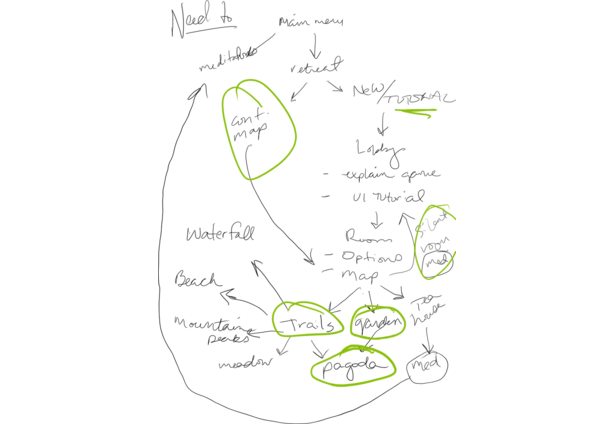 Need to
main menu
meditations
retreat
NEW/TUTORIAL
cont.
map
Lobby
- explain game
- UI Tutorial
Room
- Options
- map
silent
room
med
Waterfall
Beach
Mountain
peaks
meadow
Trails
garden
Tea
house
pagoda
med